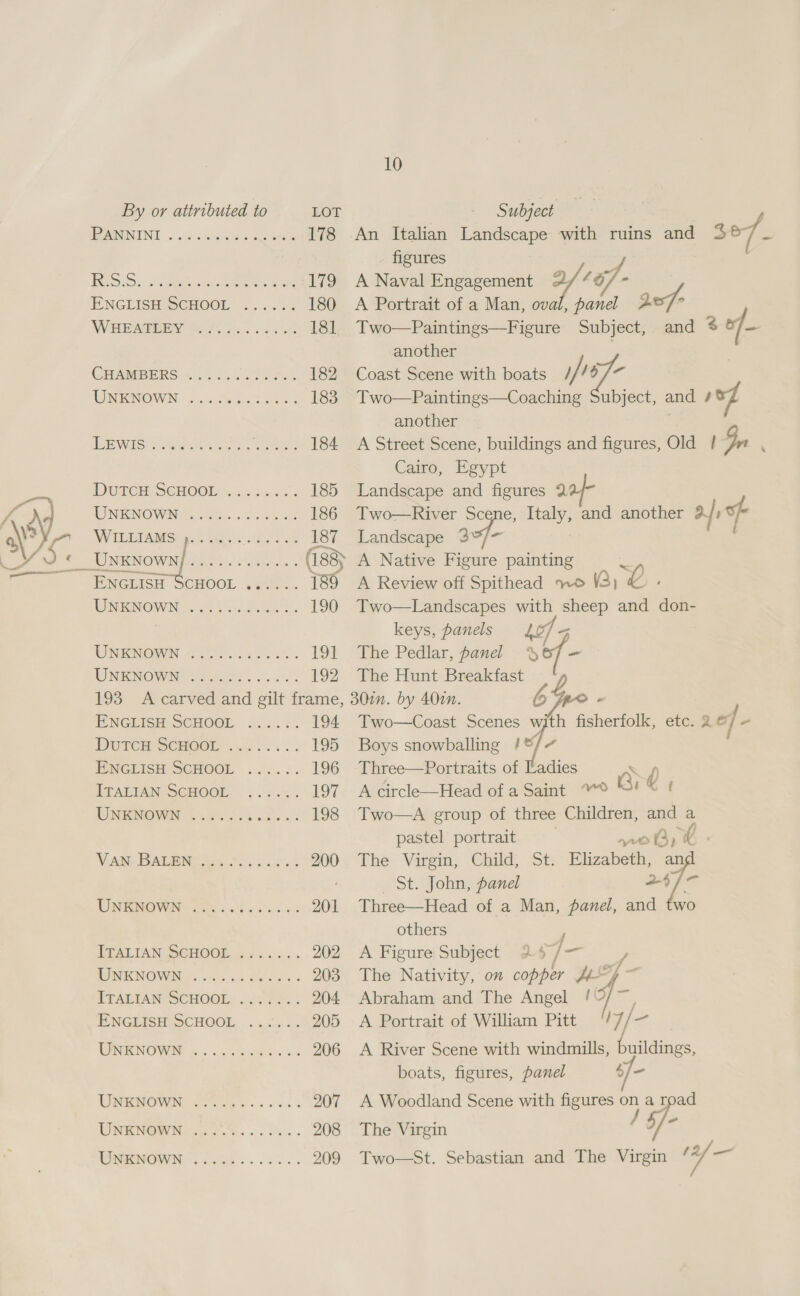 10
By or attributed to LOT Subject
PANNINI .............. 178 An Italian Landscape with ruins and 30/-
figures
R.S.S. ................ 179 A Naval Engagement 2/10/-
ENGLISH SCHOOL ...... 180 A Portrait of a Man, oval, panel 20/-
WHEATLEY ........... 181 Two—Paintings—Figure Subject, and
another
CHAMBERS ............ 182 Coast Scene with boats 1/10/-
UNKNOWN ............ 183 Two—Paintings—Coaching Subject, and
another
LEWIS ................ 184 A Street Scene, buildings and figures, Old
Cairo, Egypt
DUTCH SCHOOL ........ 185 Landscape and figures 22/-
UNKNOWN ............ 186 Two—River Scene, Italy, and another
WILLIAMS ............ 187 Landscape 30/-
UNKNOWN ............ 188 A Native Figure painting
ENGLISH SCHOOL ...... 189 A Review off Spithead
UNKNOWN ............ 190 Two—Landscapes with sheep and don-
keys, panels 40/-
UNKNOWN ............ 191 The Pedlar, panel
UNKNOWN ............ 192 The Hunt Breakfast
193 A carved and gilt frame, 30in. by 40in.
ENGLISH SCHOOL ...... 194 Two—Coast Scenes with fisherfolk, etc. 20/-
DUTCH SCHOOL ........ 195 Boys snowballing 10/-
ENGLISH SCHOOL ...... 196 Three—Portraits of Ladies
ITALIAN SCHOOL ...... 197 A circle—Head of a Saint
UNKNOWN ............ 198 Two—A group of three Children, and a
pastel portrait
VAN BALEN ........... 200 The Virgin, Child, St. Elizabeth, and
St. John, panel
UNKNOWN ............ 201 Three—Head of a Man, panel, and two
others
ITALIAN SCHOOL ....... 202 A Figure Subject 25/-
UNKNOWN ............ 203 The Nativity, on copper
ITALIAN SCHOOL ....... 204 Abraham and The Angel 10/-
ENGLISH SCHOOL ...... 205 A Portrait of William Pitt 17/-
UNKNOWN ............ 206 A River Scene with windmills, buildings,
boats, figures, panel 5/-
UNKNOWN ............ 207 A Woodland Scene with figures on a road
UNKNOWN ............ 208 The Virgin 15/-
UNKNOWN ............ 209 Two—St. Sebastian and The Virgin 12/-